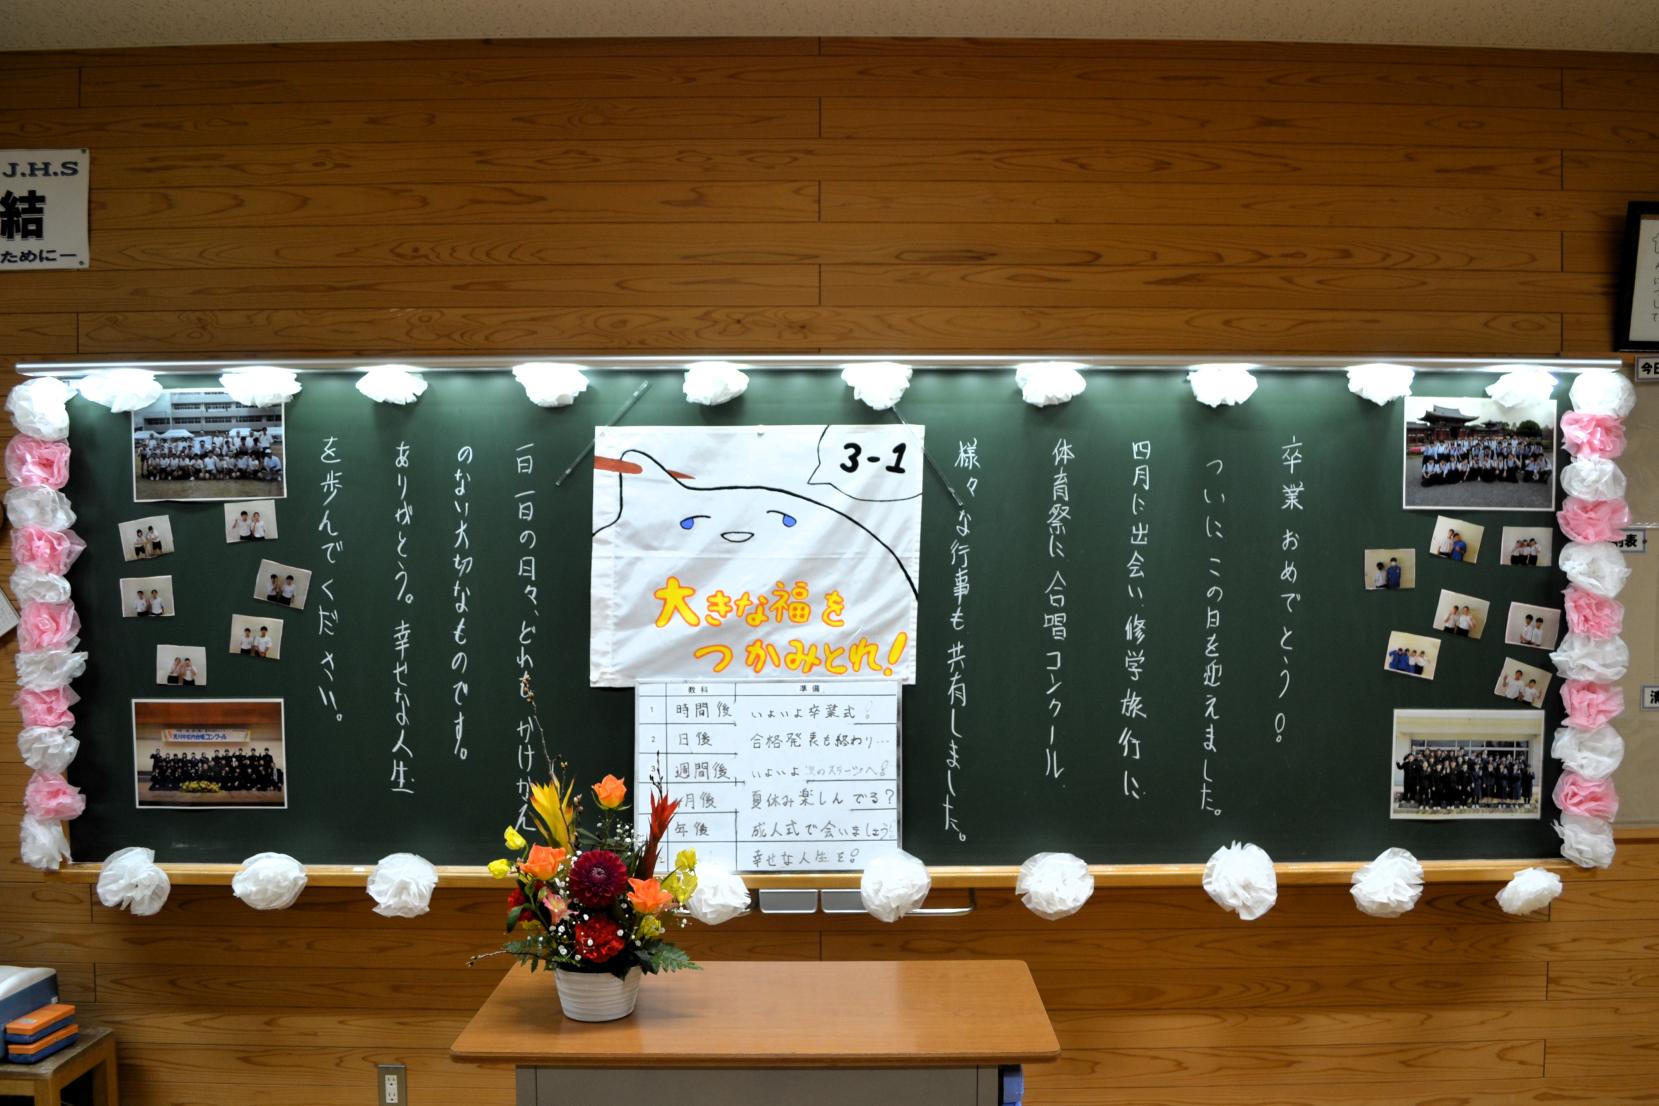 J.H.S
結
ために―。
卒業おめでとう!
ついにこの日を迎えました。
四月に出会い、修学旅行に
体育祭に合唱コンクール
様々な行事も共有しました。
3-1
大きな福を
つかみとれ!
教科 準備
1 時間後 いよいよ卒業式!
2 日後 合格発表も終わり…
3 週間後 いよいよ次のステージへ!
月後 夏休み楽しんでる?
年後 成人式で会いましょう
幸せな人生を!
一日一日の日々、どれもかけがえ
のない大切なものです。
ありがとう。幸せな人生
を歩んでください。
今日